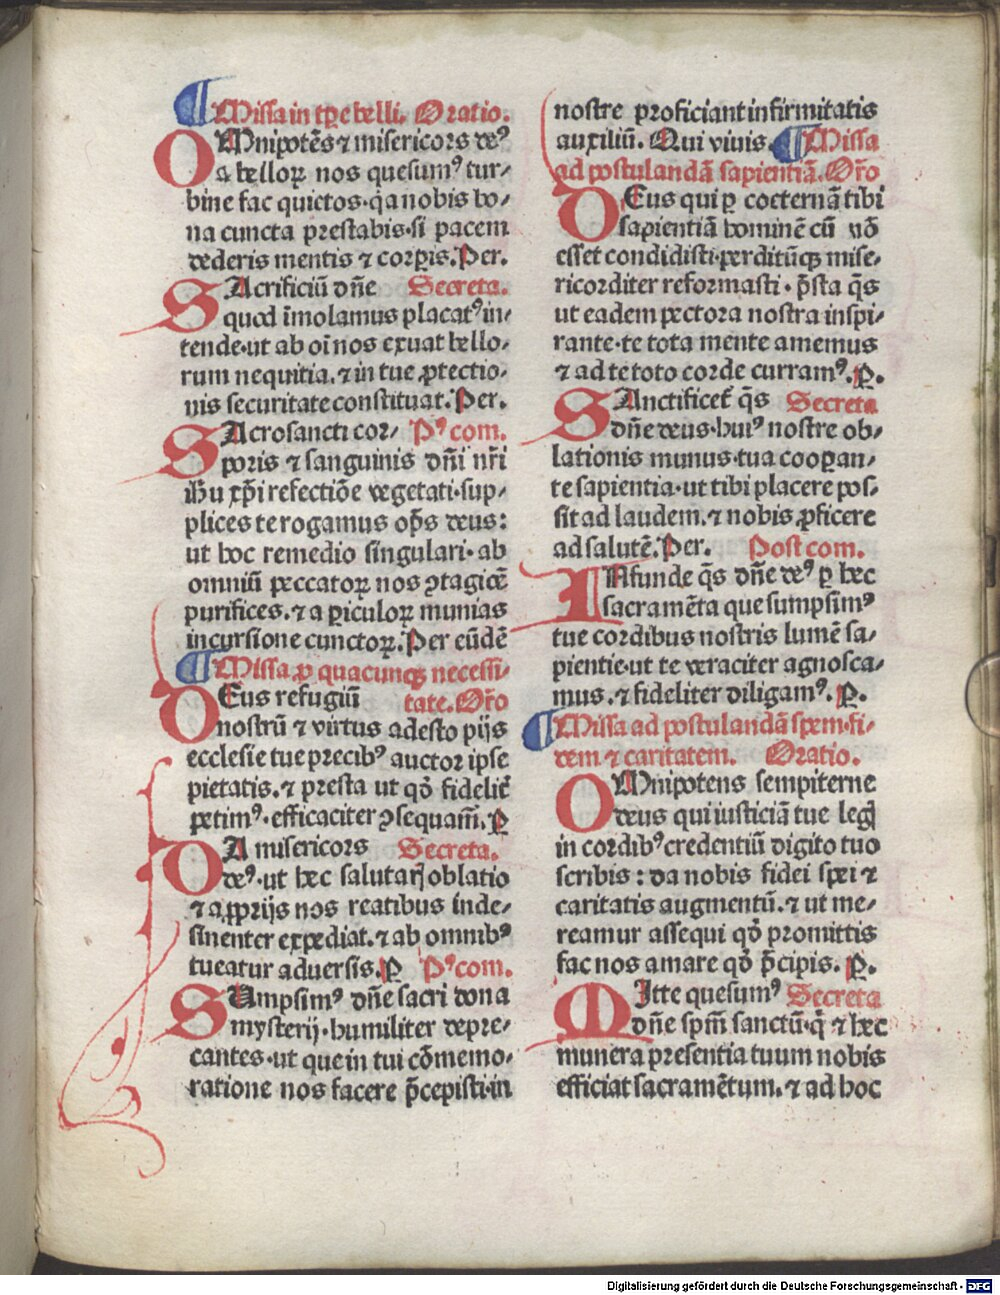 Missa in tp̄e belli. Oratio.
OMnipotēs ⁊ misericors deꝰ
a belloꝝ nos quesumꝰ tur⸗
bine fac quietos·q̄a nobis bo⸗
na cuncta prestabis·si pacem
dederis mentis ⁊ corꝑis. Per.
SAcrificiū dn̄e Secreta.
quod īmolamus placatꝰ in⸗
tende·ut ab oī nos exuat bello⸗
rum nequitia. ⁊ in tue ꝓtectio⸗
nis securitate constituat. Per.
SAcrosancti cor⸗ Pꝰ com.
poris ⁊ sanguinis dn̄i nr̄i
ihū xp̄i refectiōe vegetati·sup⸗
plices te rogamus op̄s deus:
ut hoc remedio singulari·ab
omniū peccatoꝝ nos ↄtagiōe
purifices. ⁊ a ꝑiculoꝝ munias
incursione cunctoꝝ. Per eūdē
Missa ꝓ quacunqꝫ necessi⸗
DEus refugiū tate. Or̄o
nostrū ⁊ virtus adesto pijs
ecclesie tue precibꝰ auctor ipse
pietatis. ⁊ presta ut qd̄ fidelit̄
petimꝰ·efficaciter ↄsequam̄. P̱
DA misericors Secreta.
deꝰ·ut hec salutarꝭ oblatio
⁊ a ꝓprijs nos reatibus inde⸗
sinenter expediat. ⁊ ab omnibꝰ
tueatur aduersis. P̱ Pꝰ com.
SUmpsimꝰ dn̄e sacri dona
mysterij·humiliter depre⸗
cantes·ut que in tui cōmemo⸗
ratione nos facere p̄cepisti·in
nostre proficiant infirmitatis
auxiliū. Qui viuis. Missa
ad postulandā sapientiā. Or̄o
DEus qui ꝑ coeternā tibi
sapientiā hominē cū nō
esset condidisti·perditūqꝫ mise⸗
ricorditer reformasti·p̄sta q̄s
ut eadem pectora nostra inspi⸗
rante·te tota mente amemus
⁊ ad te toto corde curramꝰ. P̱.
SAnctificet̄ q̄s Secreta
dn̄e deus·huiꝰ nostre ob⸗
lationis munus·tua cooꝑan⸗
te sapientia·ut tibi placere pos⸗
sit ad laudem. ⁊ nobis ꝓficere
ad salutē. Per. Post com.
INfunde q̄s dn̄e deꝰ ꝑ hec
sacramēta que sumpsimꝰ
tue cordibus nostris lumē sa⸗
pientie·ut te veraciter agnosca⸗
mus. ⁊ fideliter diligamꝰ. P̱.
Missa ad postulandā spem·fi⸗
dem ⁊ caritatem. Oratio.
OMnipotens sempiterne
deus qui iusticiā tue legꝭ
in cordibꝰ credentiū digito tuo
scribis: da nobis fidei spei ⁊
caritatis augmentū. ⁊ ut me⸗
reamur assequi qd̄ promittis
fac nos amare qd̄ p̄cipis. P̱.
MItte quesumꝰ Secreta
dn̄e spm̄ sanctū·q̄ ⁊ hec
munera presentia tuum nobis
efficiat sacramētum. ⁊ ad hoc
Digitalisierung gefördert durch die Deutsche Forschungsgemeinschaft - DFG